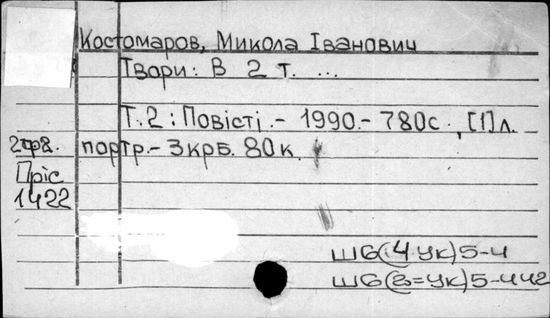 Костомаров, Микола Іванович
Твори: В 2 т. ...
Т. 2 : Повісті .- 1990.- 780с., [1]л.
портр.- 3крб. 80к.
Пріс
1422
Ш6(4Ук)5-4
Ш6(2=Ук)5-442